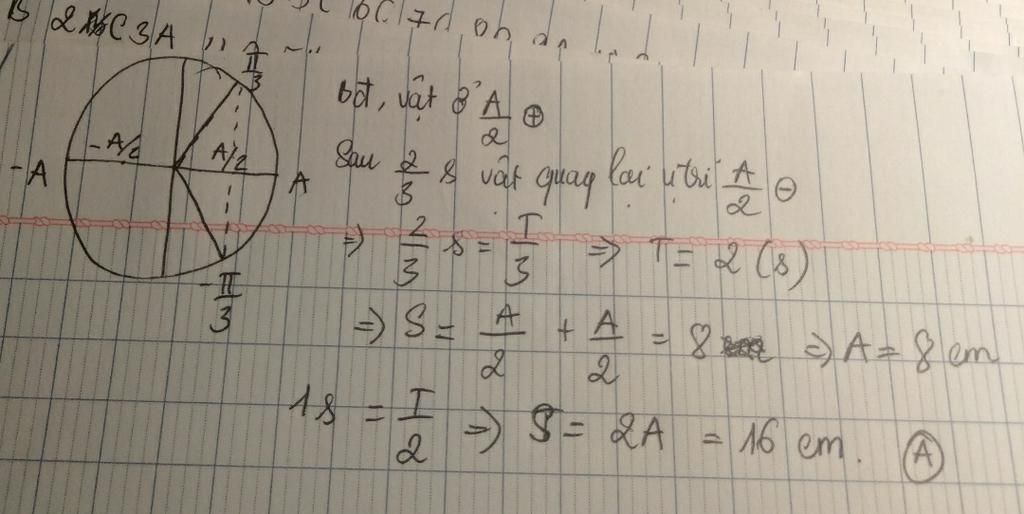 2 C 3A
π/3
-A/2 A/2
-A A
-π/3
bđ, vật ở A/2 ⊕
Sau 2/3 s vật quay lại vị trí A/2 ⊖
=> 2/3 s = T/3 => T = 2 (s)
=> S = A/2 + A/2 = 8 => A = 8 cm
1s = T/2 => S = 2A = 16 cm. Ⓐ